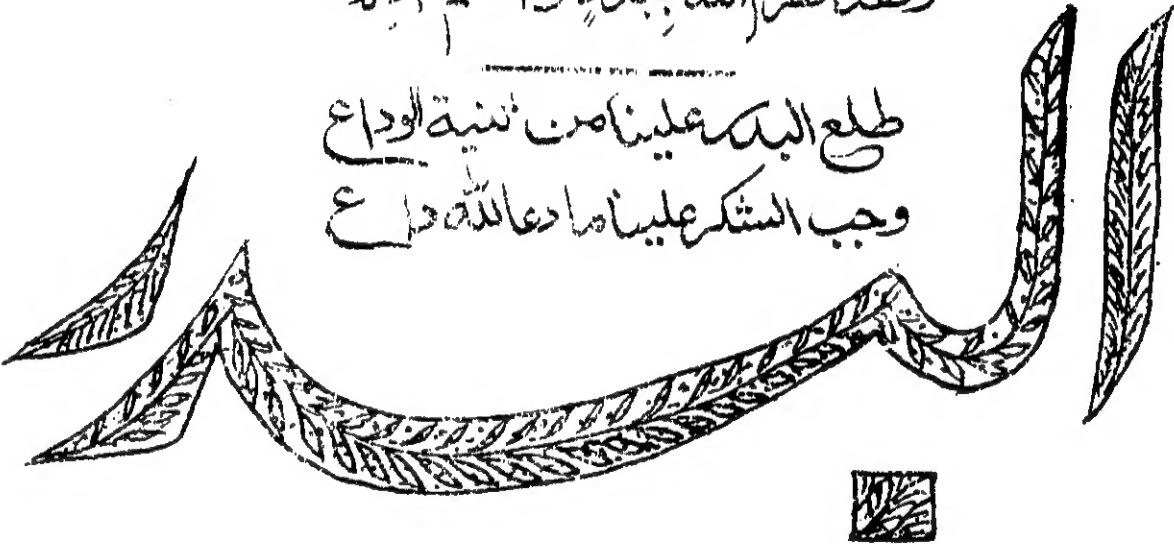 طلع البدر علينا من ثنية الوداع
وجب الشكر علينا ما دعا لله داع
البدر